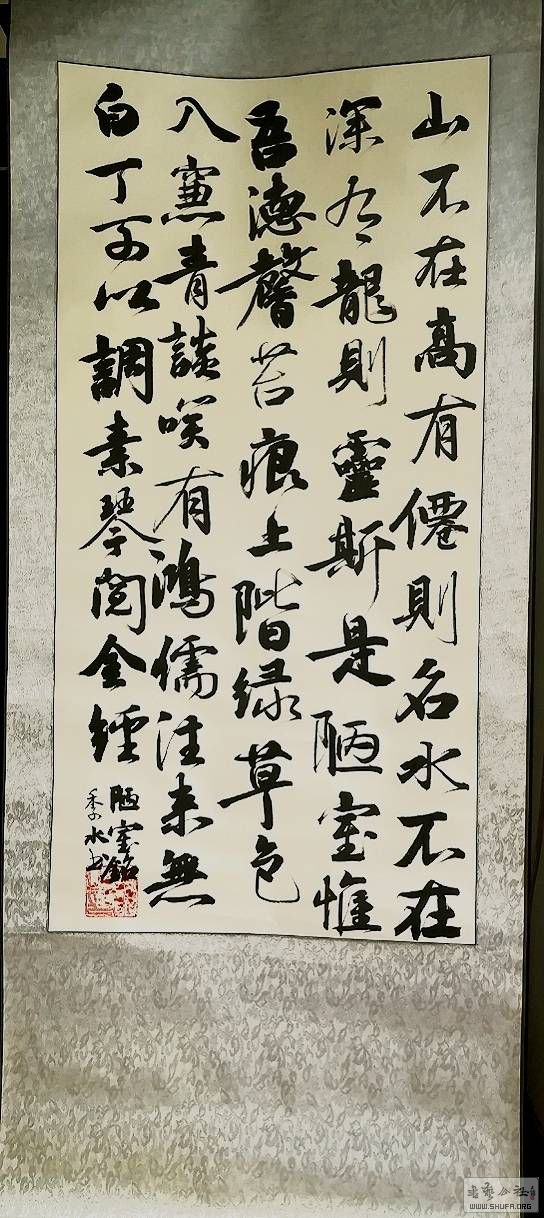 山不在高有僊則名水不在
深有龍則靈斯是陋室惟
吾德馨苔痕上階绿草色
入窻青談咲有鴻儒往来無
白丁可以調素琴閲金經
陋室銘
水书
書藝公社
WWW.SHUFA.ORG